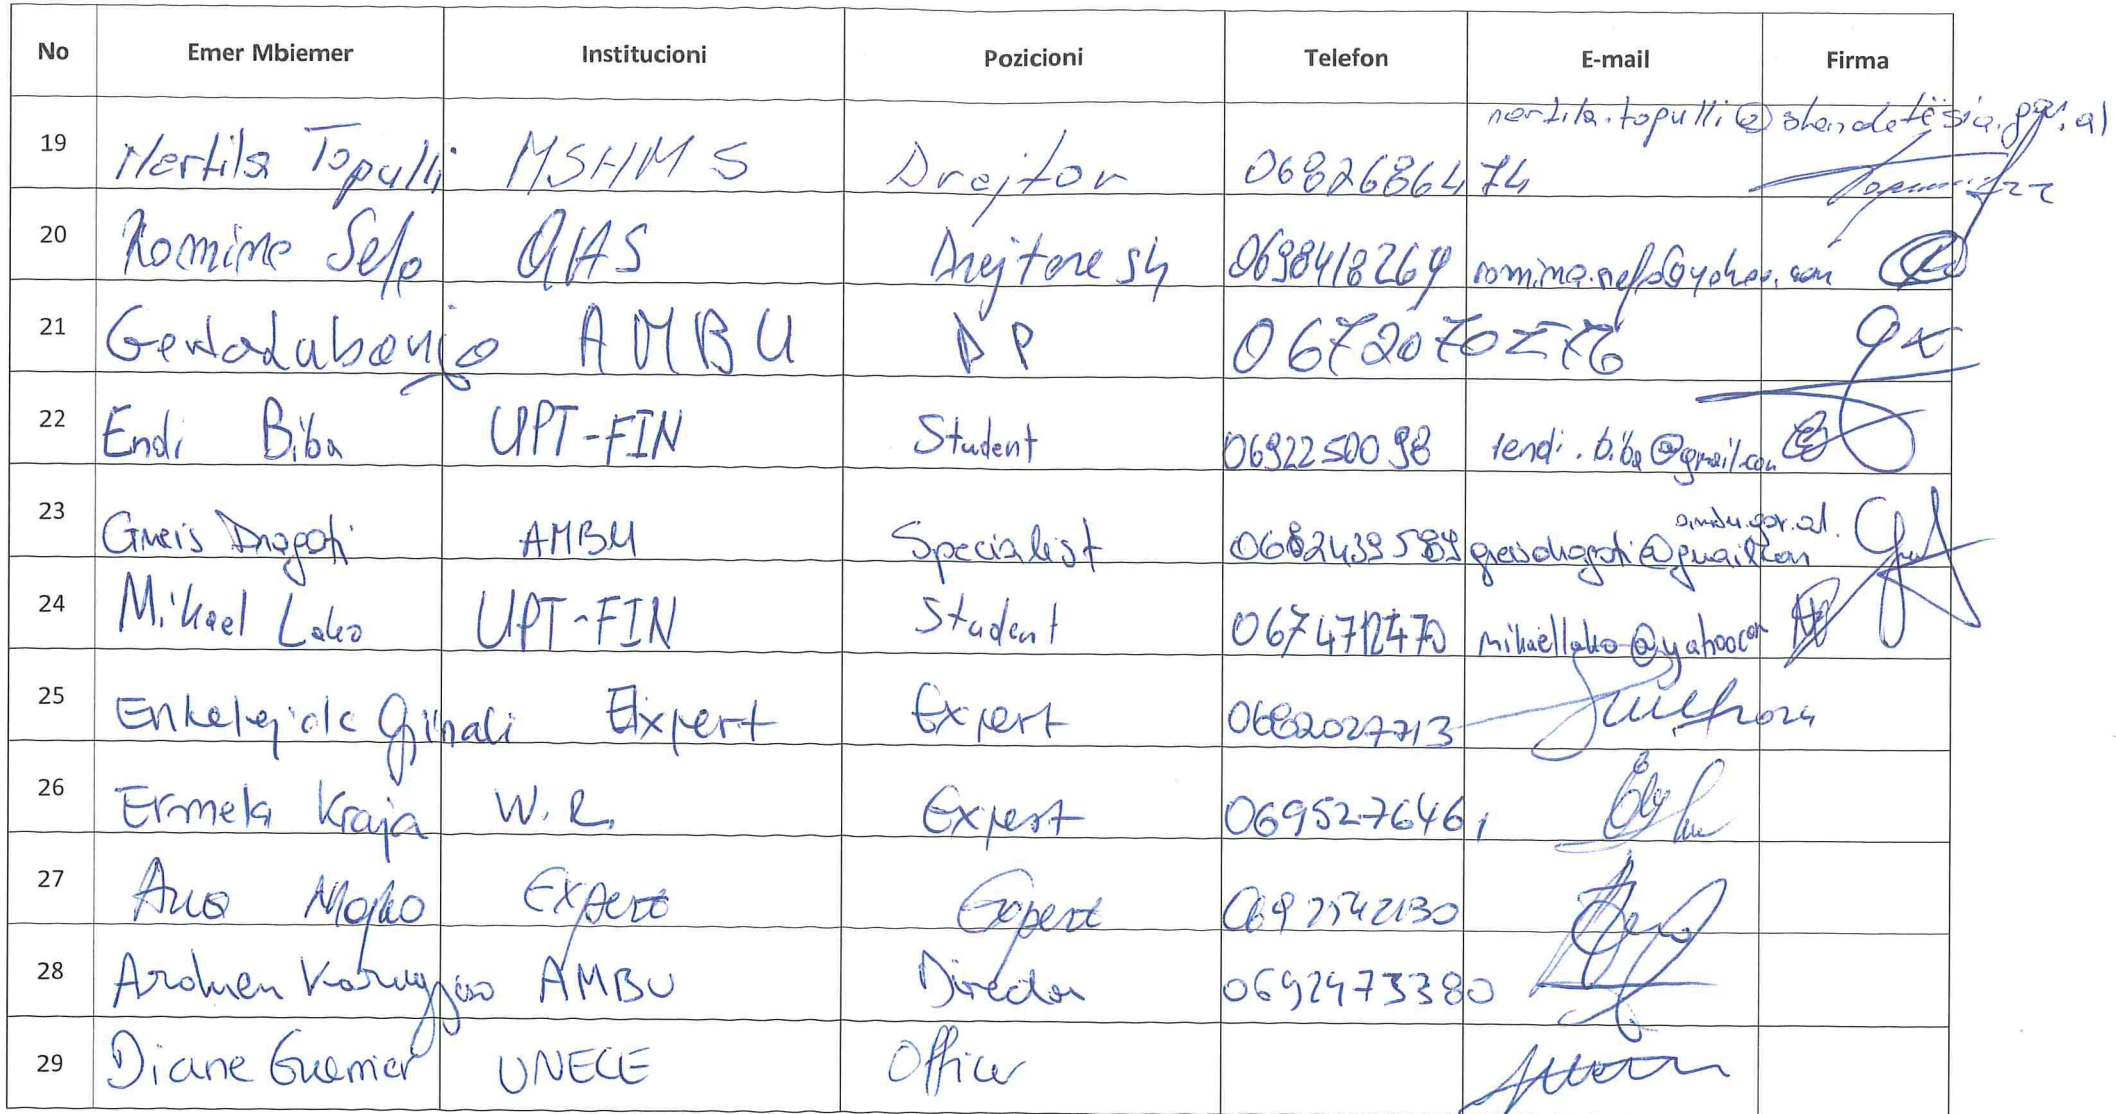 No Emer Mbiemer Institucioni Pozicioni Telefon E-mail Firma
19 Nertila Topulli MSHMS Drejtor 0682686474 nertila.topulli@shendetësia.gov.al
20 Romina Sefa QHS Drejtore sh 0698418269
21 AMBU DP
22 Endi Biba UPT-FIN Student 0692250098 tendi.biba@gmail.com
23 Gneis Dragoti AMBU Specialist 0682439589 ambu.gov.al.
24 Mikael Lako UPT-FIN Student 0674712470 mikaellako@yahoo.com
25 Enkelejda Gjinali Expert Expert 0682027713
26 Ermela Kraja W.R. Expert 0695276461
27 Ana Majko Expert Expert
28 Arduen Karagjozo AMBU Director 0692473380
29 Diane Guerrier UNECE Officer